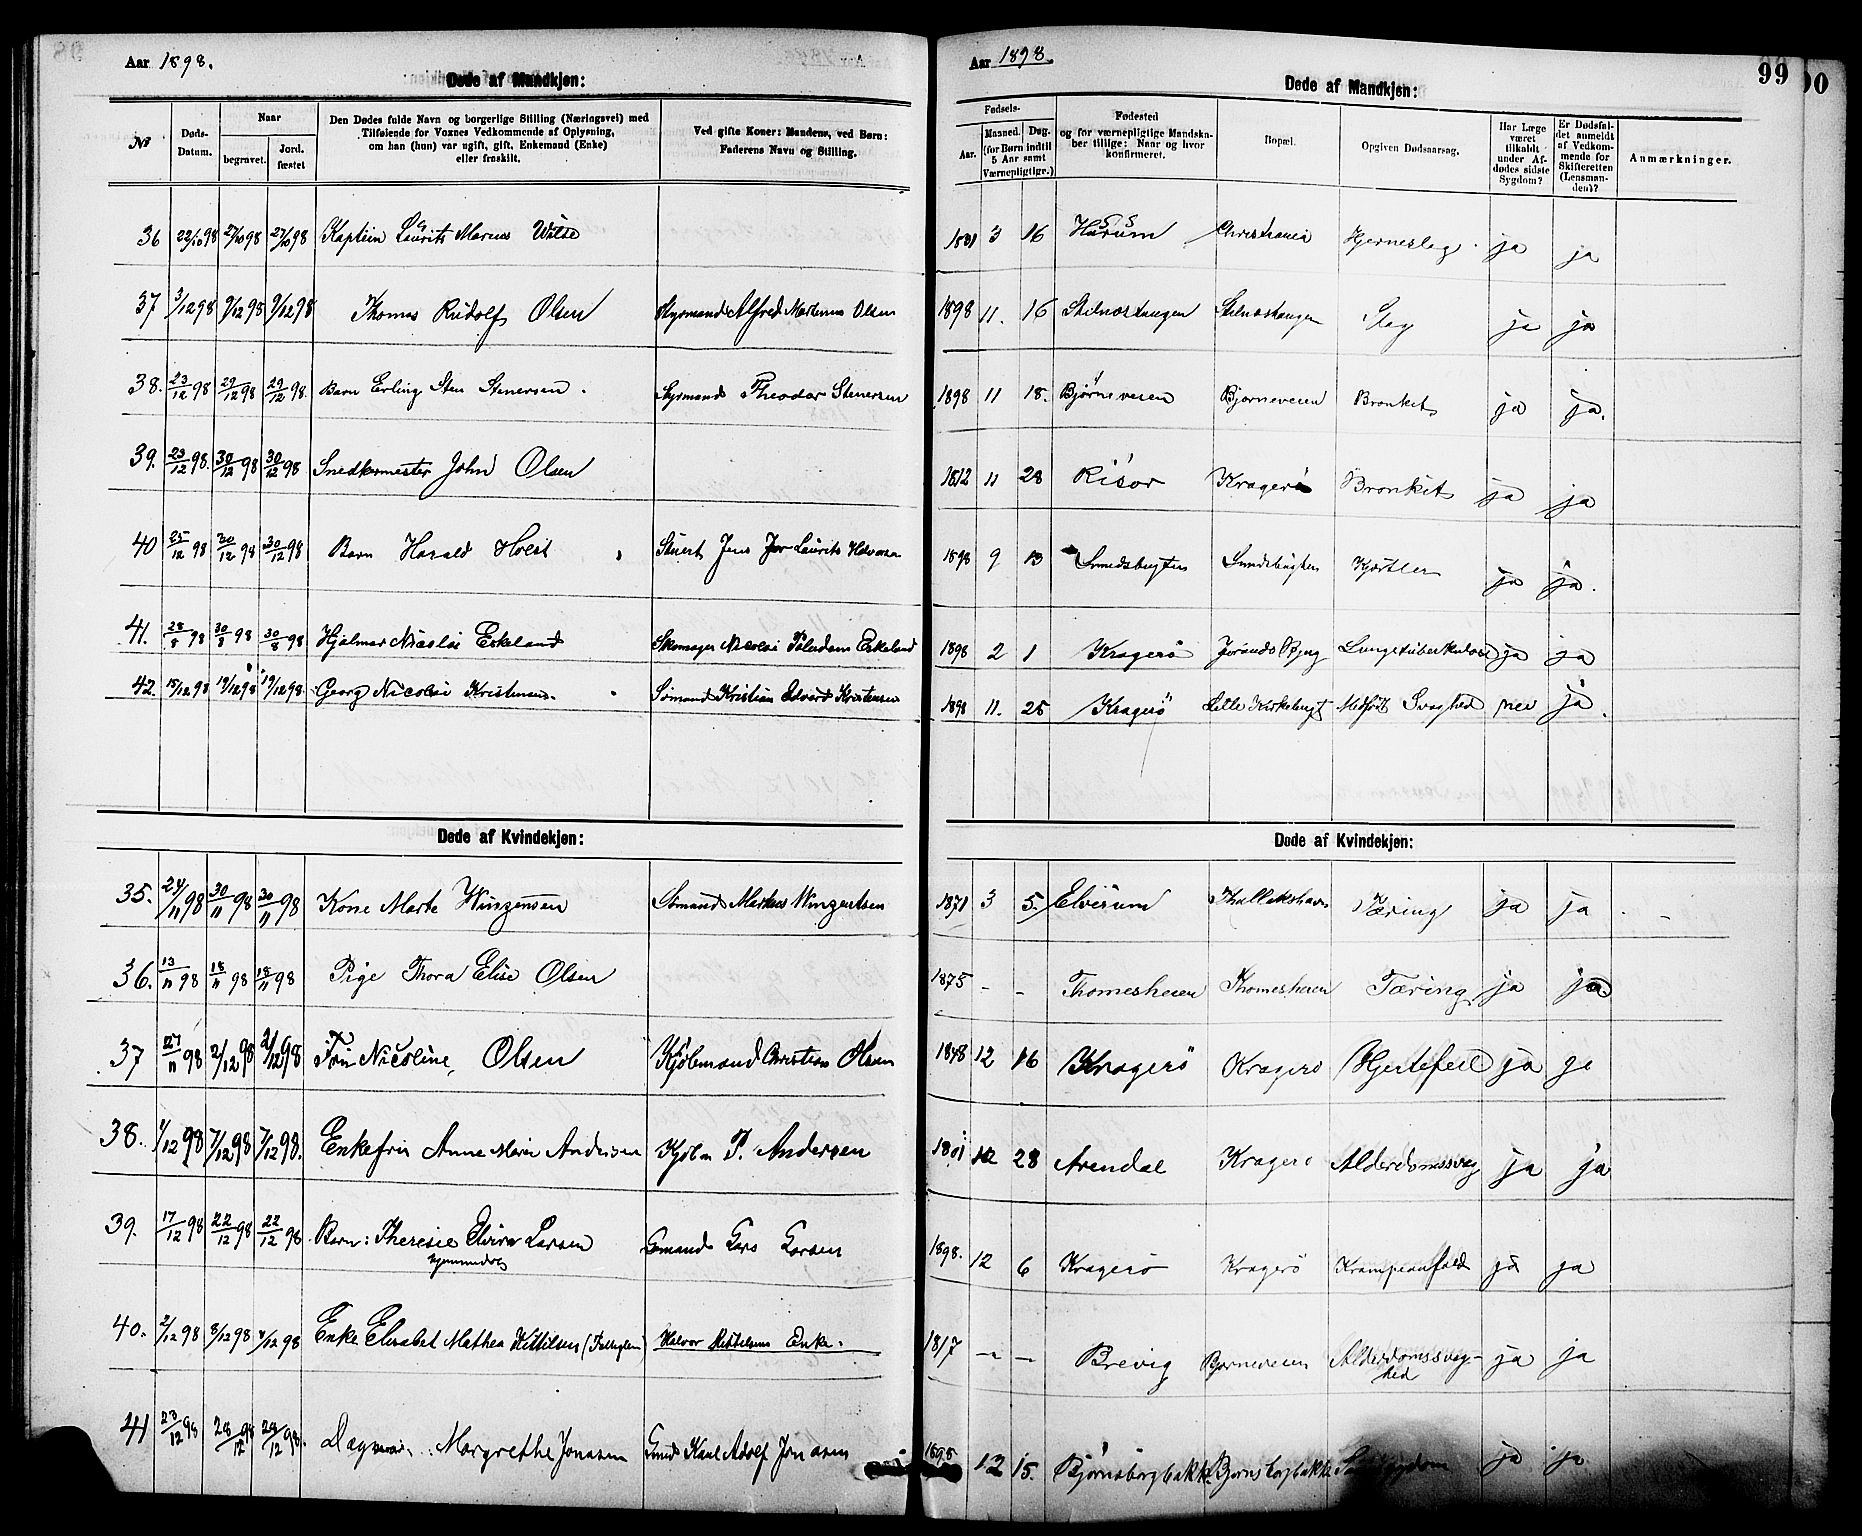 Aar 1898.
Døde af Mandkjøn:
№
Døds-Datum.
Naar
begravet.
Jord-fæstet
Den Dødes fulde Navn og borgerlige Stilling (Næringsvei) med
Tilføiende for Voxnes Vedkommende af Oplysning,
om han (hun) var ugift, gift, Enkemand (Enke)
eller fraskilt.
Ved gifte Koner: Mandens, ved Børn:
Faderens Navn og Stilling.
36 22/10 98 27/10 98 27/10 98 Kaptein Laurits Marcus Wilse
37 3/12 98 9/12 98 9/12 98 Thomas Rudolf Olsen Styrmand Alfred Martinus Olsen
38. 23/12 98 29/12 98 29/12 98. Barn Erling Sten Stenersen. Styrmand Theodor Stenersen
39. 23/12 98. 30/12 98 30/12 98 Snedkermester John Olsen
40 25/12 98 30/12 98 30/12 98 Barn Harald Stuert Jens Laurits
41. 28/8 98 30/8 98 30/8 98 Hjalmar Nicolai Eskeland Skomager Nicolai Eskeland
42. 15/12 98 19/12 98 19/12 98 Georg Nicolai Kristensen. Sømand Kristian Edvard Kristensen
Døde af Kvindekjøn:
35. 24/11 98 30/11 98 30/11 98 Kone Marte Sømand
36. 13/11 98 18/11 98 18/11 98 Pige Thora Elise Olsen
37 27/11 98 2/12 98 2/12 98 Fru Nicoline, Olsen Kjøbmand Christian Olsen
38. 1/12 98 7/12 98 7/12 98. Enkefru Anne Marie Andersen Kjøbm P. Andersen
39. 17/12 98 22/12 98 22/12 98 Barn: Theresie Elvira Larsen Sømand Lars Larsen
hjemmedøbt
40. 2/12 98 8/12 98 8/12 98 Enke Elisabet Mathea Kittilsen Halvor Kittilsens Enke.
41 23/12 98 28/12 98 28/12 98. Dagmar Margrethe Jonasen Karl Adolf Jonasen
Aar 1898.
99
Døde af Mandkjøn:
Fødsels-
Aar.
Maaned.
Døg.
(for Børn indtil
5 Aar samt
Værnepligtige.)
Fødested
og for værnepligtige Mandska-
ber tillige: Naar og hvor
konfirmeret.
Bopæl.
Opgiven Dødsaarsag.
Har Læge
været
tilkaldt
under Af-
dødes sidste
Sygdom?
Er Dødsfal-
det anmeldt
af Vedkom-
mende for
Skifteretten
(Lensman-
den)?
Anmærkninger.
1831 3 16 Hurum Christiania Hjerneslag. ja ja
1898 11. 16 Stilnæstangen Stilnæstangen Slag ja ja
1898 11 18. Bjørneveien Bjørneveien Bronkit ja ja.
1812 11 28 Risør Kragerø Bronkit ja ja
1898 9 13 Smedsbugten Kjertler ja ja.
1898 2 1 Kragerø Bjerg Lungetuberkulose ja ja
1898 11. 25 Kragerø Lille Kirkebugt Medfødt Svaghed nei ja.
Døde af Kvindekjøn:
1871 3 5. Elverum Tæring ja ja
1875 - - Thomesheien Thomesheien Tæring ja ja.
1848 12 16 Kragerø Kragerø Hjertefeil ja ja
1801 12 28 Arendal Kragerø Alderdomssvag ja ja
1898. 12 6 Kragerø Kragerø Krampeanfald ja ja
1817 - - Brevig Bjørneveien Alderdomssvag-
hed ja ja
1898 12 15. Bjørnsborgbakk. Bjørnsborgbakk. ja ja